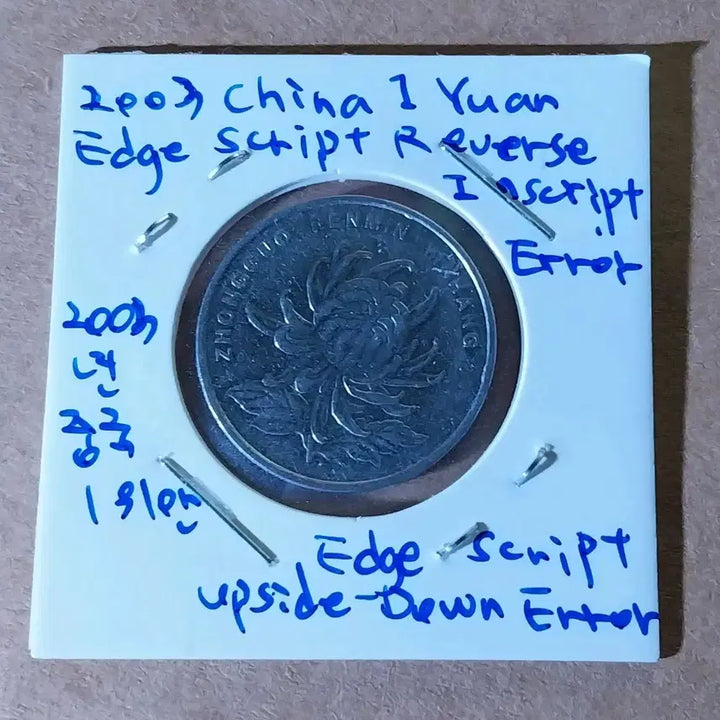 2003 China 1 Yuan
Edge Script Reverse
Inscript
Error
ZHONGGUO RENMIN YINHANG
2003
년
중국
1위안
Edge Script
upside-Down Error